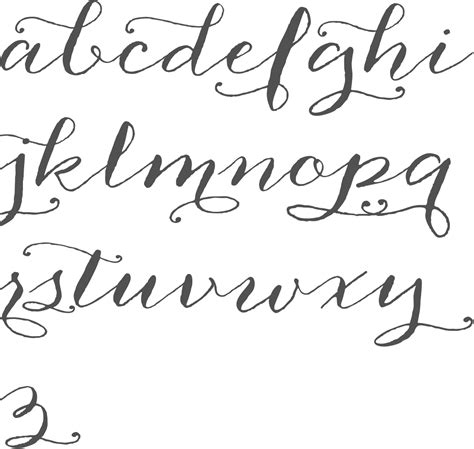 abcdefghi
jklmnopq
rstuvwxy
z